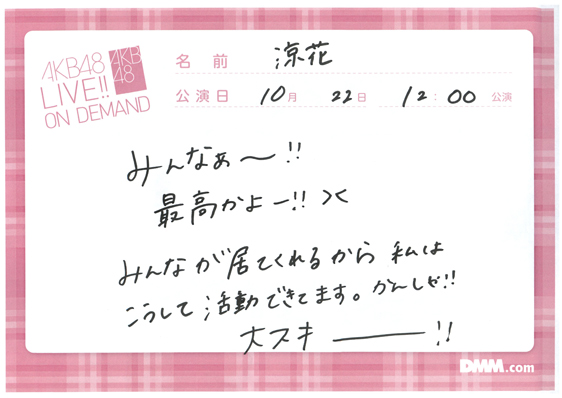 AKB48
LIVE!!
ON DEMAND
AKB
48
名前 涼花
公演日 10月 22日 12:00 公演
みんなぁ〜!!
最高かよー!! ><
みんなが居てくれるから 私は
こうして活動できてます。かんしゃ!!
大スキ ―――!!
DMM.com